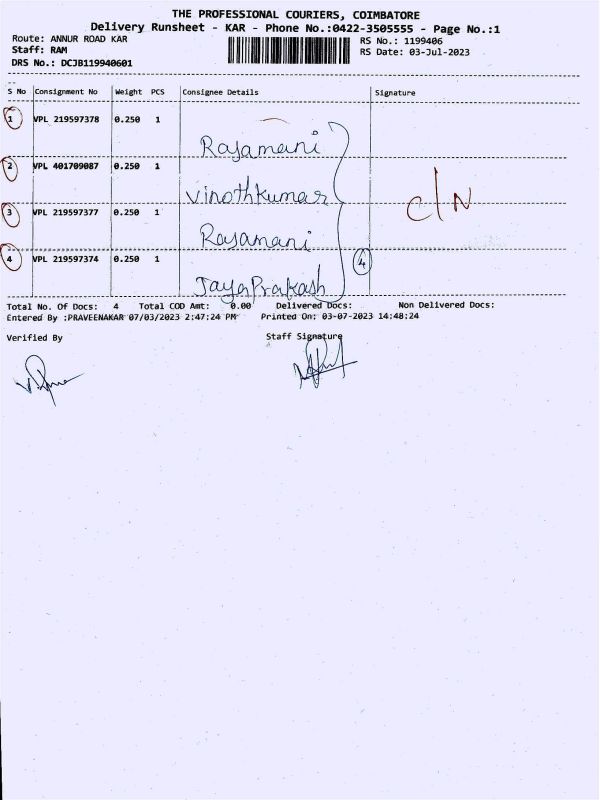 THE PROFESSIONAL COURIERS, COIMBATORE
Delivery Runsheet - KAR - Phone No.:0422-3505555 - Page No.:1
Route: ANNUR ROAD KAR
RS No.: 1199406
Staff: RAM
RS Date: 03-Jul-2023
DRS No.: DCJB119940601
S No Consignment No Weight PCS Consignee Details Signature
1 VPL 219597378 0.250 1
Rajamani
2 VPL 401709087 0.250 1
Vinothkumar
C/N
3 VPL 219597377 0.250 1
Rajamani
4 VPL 219597374 0.250 1
4
JayaPrakash
Total No. Of Docs: 4 Total COD Amt: 0.00 Delivered Docs: Non Delivered Docs:
Entered By :PRAVEENAKAR 07/03/2023 2:47:24 PM Printed On: 03-07-2023 14:48:24
Verified By Staff Signature